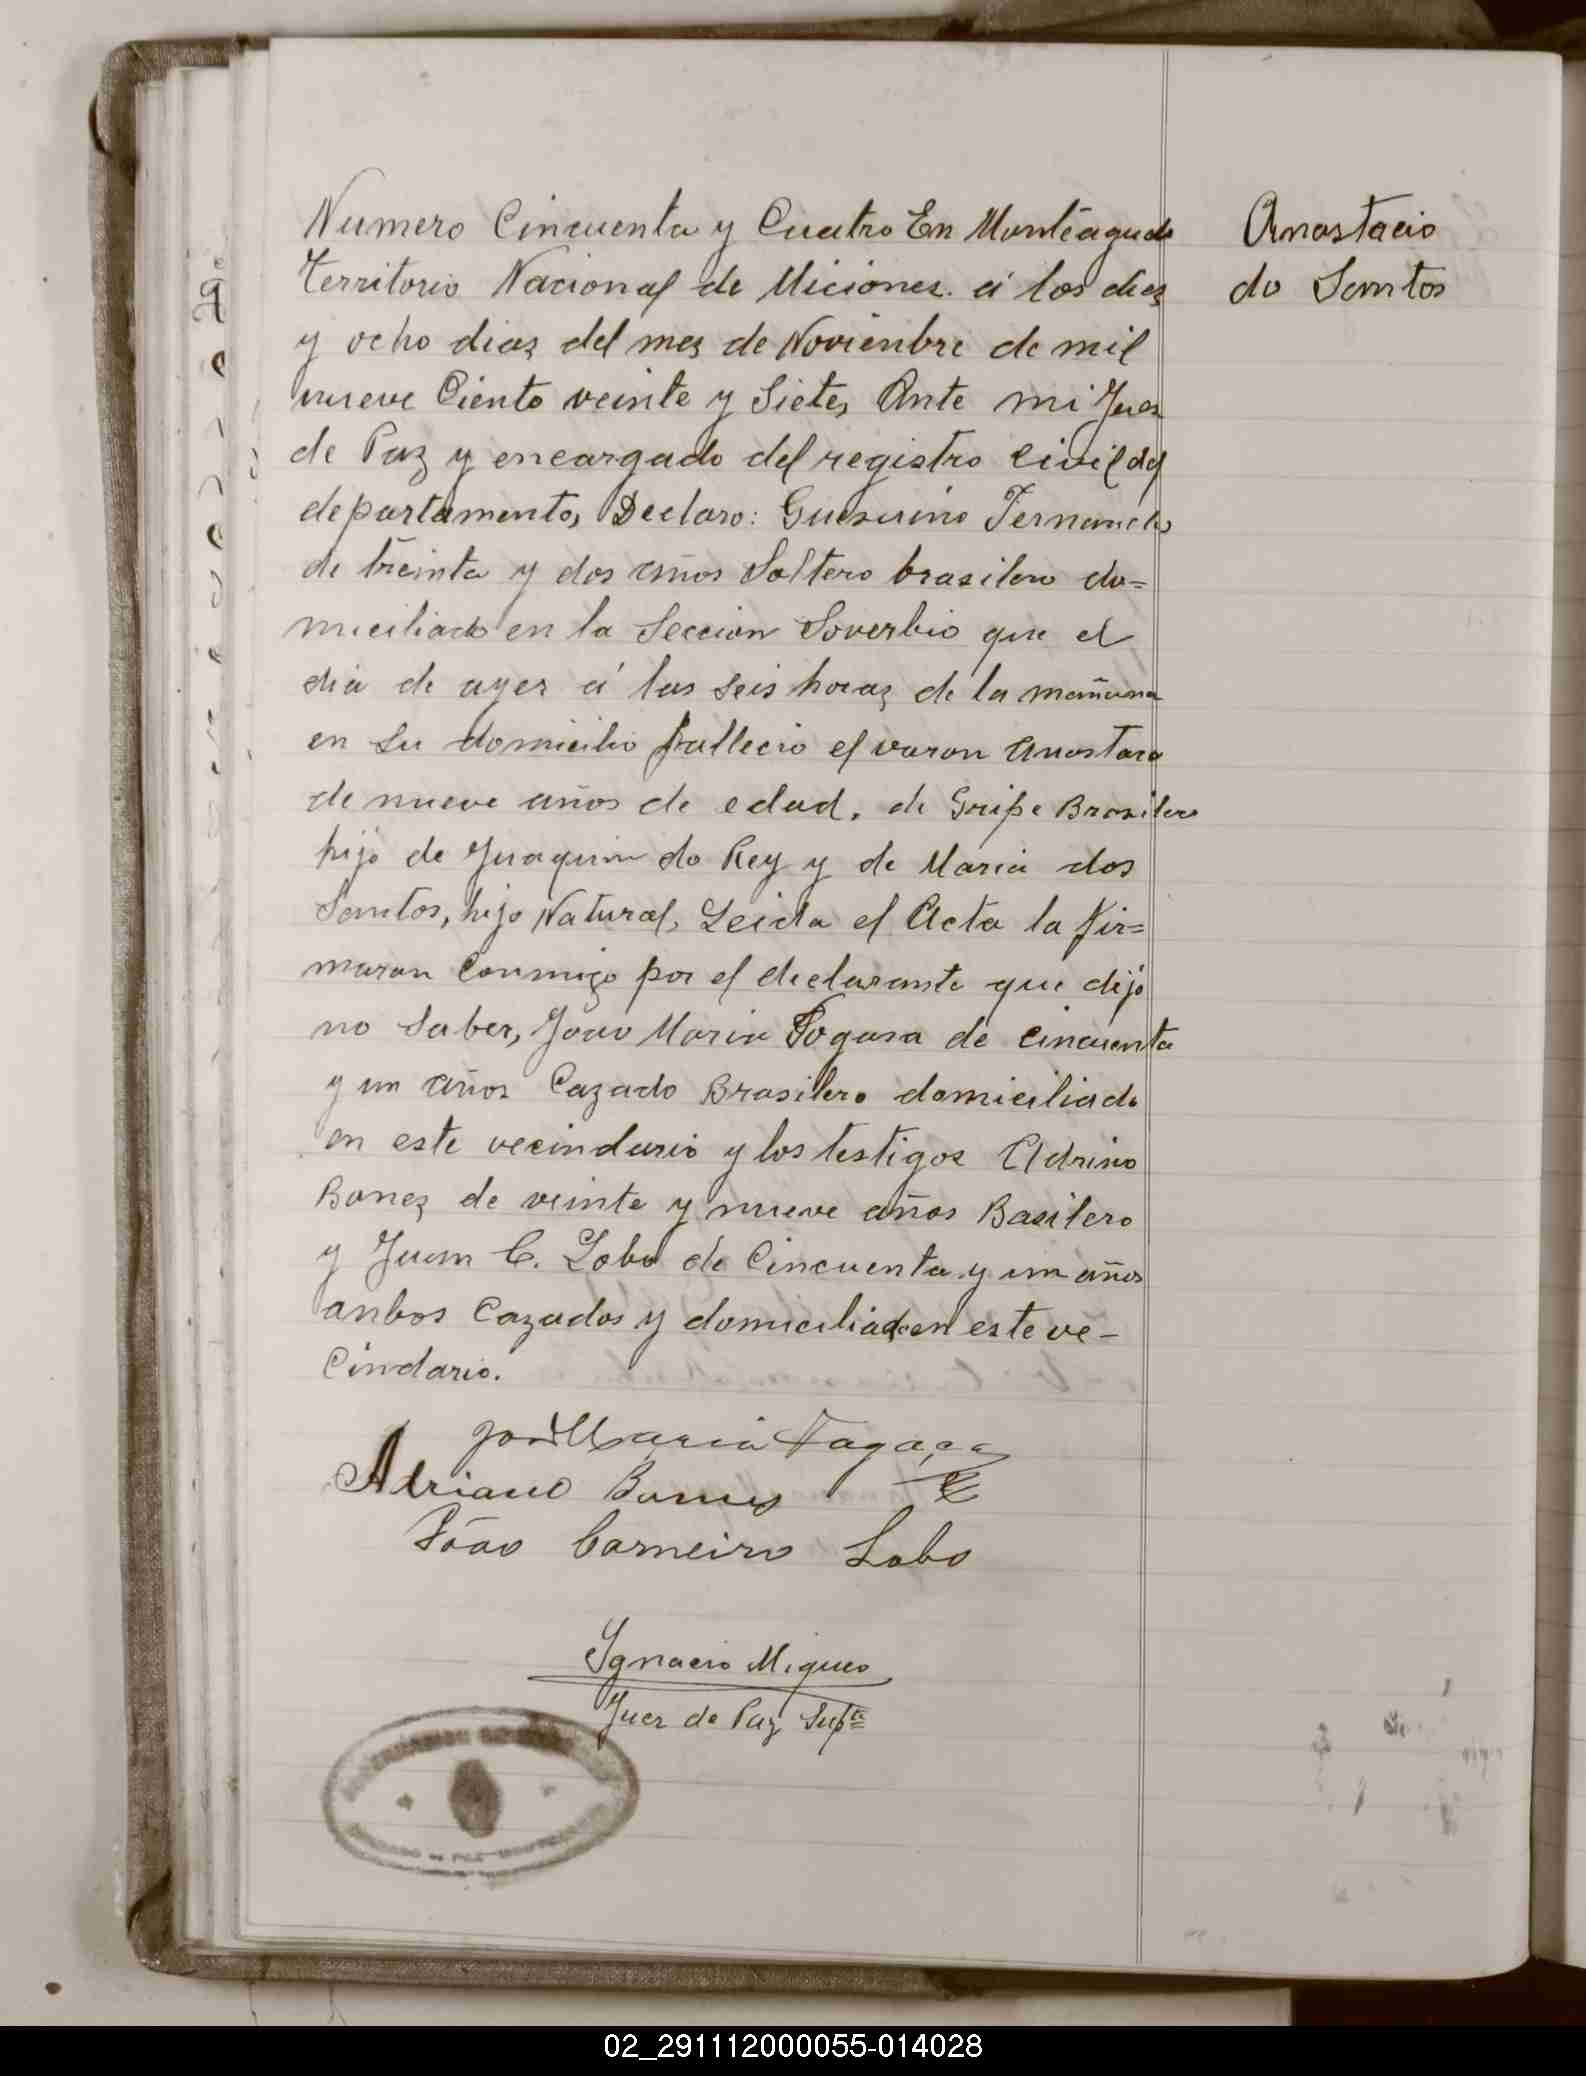 Numero Cincuenta y Cuatro En Monteagudo
Territorio Nacional de Miciones. á los dies
y ocho dias del mes de Novienbre de mil
nueve Ciento veinte y Siete, Ante mi Jues
de Paz y encargado del registro civil del
departamento, Declaro: Guesurino Fernando
de treinta y dos años Soltero brasilero do=
miciliado en la Seccion Soverbio que el
dia de ayer á las seis horas de la mañana
en su domicilio fallecio el varon Anostacio
de nueve años de edad. de Gripe Brasilero
hijo de Juaquin do Rey y de Maria dos
Santos, hijo Natural, Leida el Acta la fir=
maron Conmigo por el declarante que dijo
no Saber, Joao Maria Fogasa de cincuenta
y un años Cazado Brasilero domiciliado
en este vecindario y los testigos Adrino
Bones de veinte y nueve años Basilero
y Juan C. Lobo de Cincuenta y un años
anbos Cazados y domiciliados en este ve-
Cindario.
Anostacio
do Santos
Maria Fagaça
Adriano
João Carneiro Lobo
Ignacio Migueo
Jues de Paz Supte
02_291112000055-014028